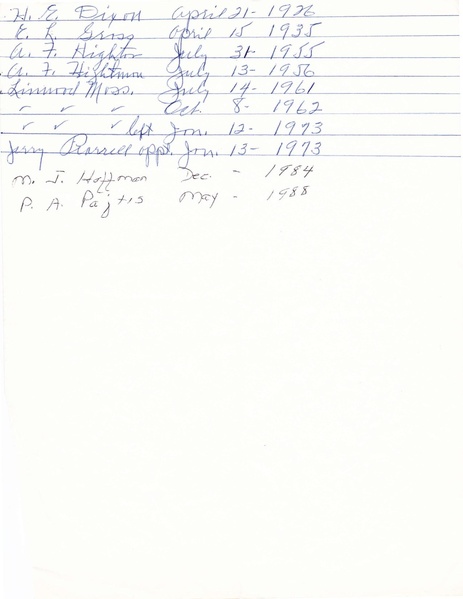 H. E. Dixon April 21- 1926
E. L. April 15 1935
A. F. July 31- 1955
A. F. July 13- 1956
Linwood Moss. July 14- 1961
✓ ✓ ✓ Oct. 8- 1962
✓ ✓ ✓ left Jan. 12- 1973
Jerry appt. Jan. 13- 1973
M. J. Hoffman Dec. - 1984
P. A. Pajtis May - 1988